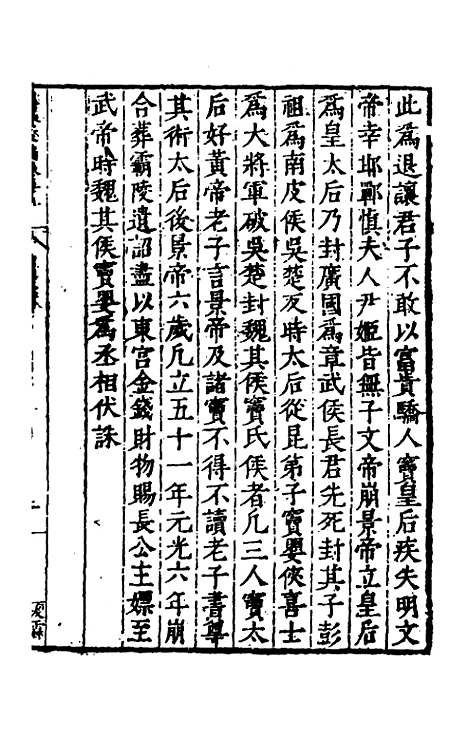 此爲退讓君子不敢以富貴驕人竇皇后疾失明文
帝幸邯鄲慎夫人尹姬皆無子文帝崩景帝立皇后
爲皇太后乃封廣國爲章武侯長君先死封其子彭
祖爲南皮侯吳楚反時太后從昆弟子竇嬰俠喜士
爲大將軍破吳楚封魏其侯竇氏侯者凡三人竇太
后好黃帝老子言景帝及諸竇不得不讀老子書尊
其術太后後景帝六歲凡立五十一年元光六年崩
合葬霸陵遺詔盡以東宮金錢財物賜長公主嫖至
武帝時魏其侯竇嬰爲丞相伏誅